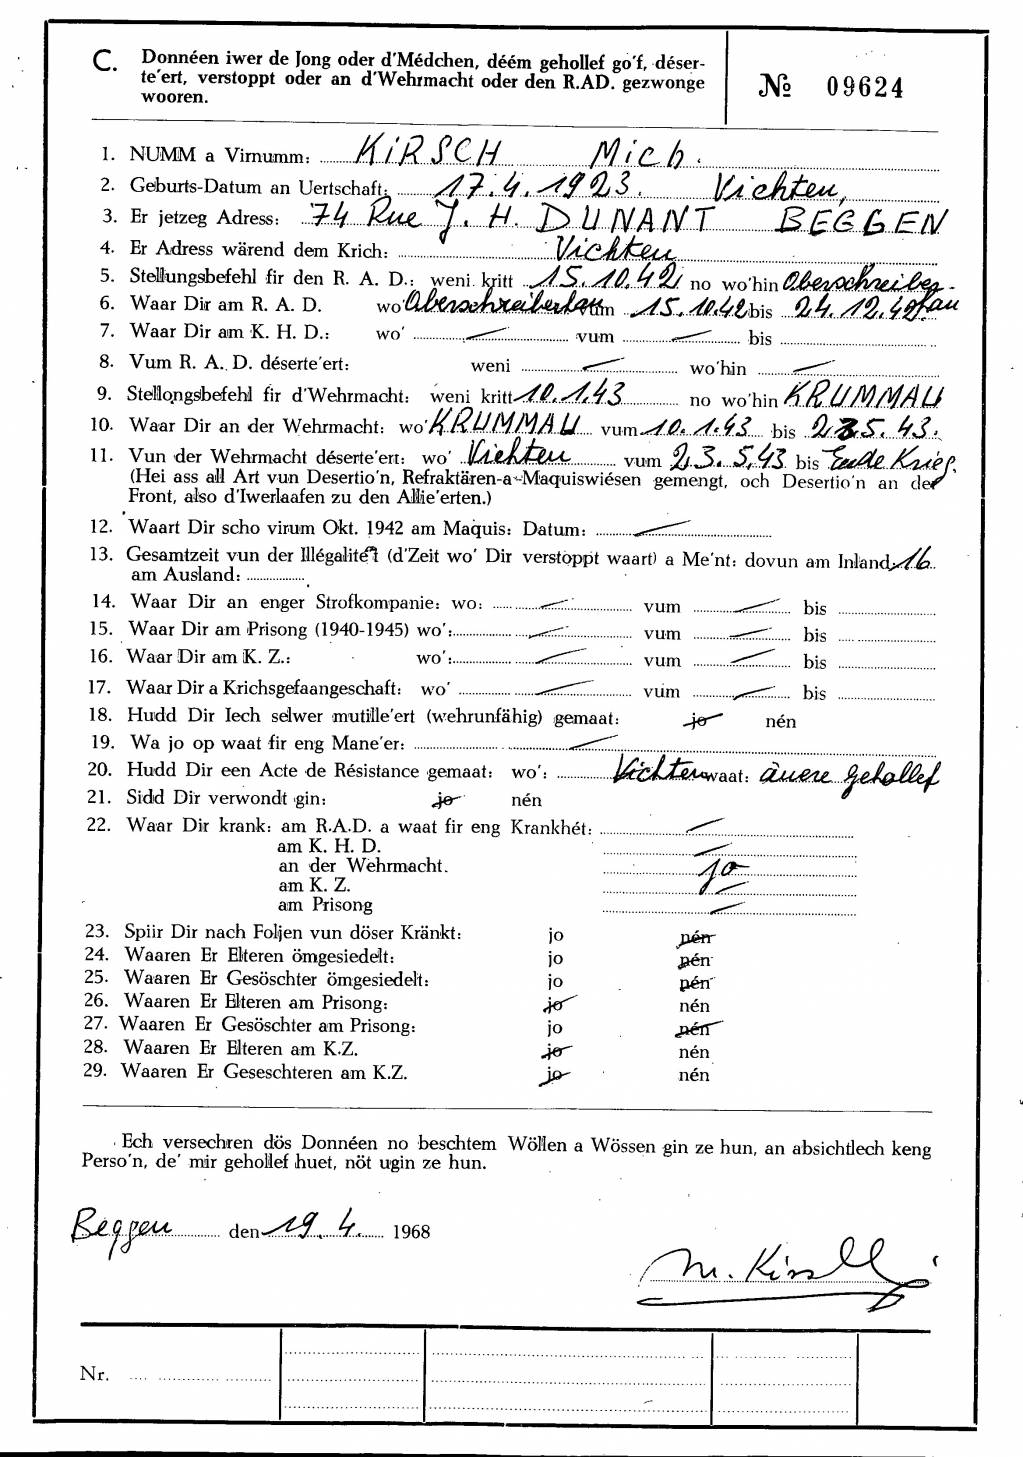 C. Donnéen iwer de Jong oder d'Médchen, déém gehollef go'f, déser-
te'ert, verstoppt oder an d'Wehrmacht oder den R.AD. gezwonge
wooren.
№ 09624
1. NUMM a Virnumm: KiRSCH Mich.
2. Geburts-Datum an Uertschaft: 17.4.1923. Vichten,
3. Er jetzeg Adress: 74 Rue J. H. DUNANT BEGGEN
4. Er Adress wärend dem Krich: Vichten
5. Stellungsbefehl fir den R. A. D.: weni kritt 15.10.42 no wo'hin Oberschreiber-
6. Waar Dir am R. A. D. wo' Oberschreiberlau vum 15.10.42 bis 24.12.42. lau
7. Waar Dir am K. H. D.: wo' — vum — bis
8. Vum R. A. D. déserte'ert: weni — wo'hin —
9. Stellongsbefehl fir d'Wehrmacht: weni kritt 10.1.43 no wo'hin KRUMMAU
10. Waar Dir an der Wehrmacht: wo' KRUMMAU vum 10.1.43 bis 23.5.43.
11. Vun der Wehrmacht déserte'ert: wo' Vichten vum 23.5.43. bis Ende Krieg.
(Hei ass all Art vun Desertio'n, Refraktären-a-Maquiswiésen gemengt, och Desertio'n an der
Front, also d'Iwerlaafen zu den Allie'erten.)
12. Waart Dir scho virum Okt. 1942 am Maquis: Datum: —
13. Gesamtzeit vun der Illégalitét (d'Zeit wo' Dir verstoppt waart) a Me'nt: dovun am Inland: 16
am Ausland:
14. Waar Dir an enger Strofkompanie: wo: — vum — bis
15. Waar Dir am Prisong (1940-1945) wo': — vum — bis
16. Waar Dir am K. Z.: wo': — vum — bis
17. Waar Dir a Krichsgefaangeschaft: wo' — vum — bis
18. Hudd Dir Iech selwer mutille'ert (wehrunfähig) gemaat: jo nén
19. Wa jo op waat fir eng Mane'er: —
20. Hudd Dir een Acte de Résistance gemaat: wo': Vichten waat: ànere gehollef
21. Sidd Dir verwondt gin: jo nén
22. Waar Dir krank: am R.A.D. a waat fir eng Krankhét: —
am K. H. D. —
an der Wehrmacht. jo
am K. Z. —
am Prisong —
23. Spiir Dir nach Foljen vun döser Kränkt: jo nén
24. Waaren Er Elteren ömgesiedelt: jo nén
25. Waaren Er Gesöschter ömgesiedelt: jo nén
26. Waaren Er Elteren am Prisong: jo nén
27. Waaren Er Gesöschter am Prisong: jo nén
28. Waaren Er Elteren am K.Z. jo nén
29. Waaren Er Geseschteren am K.Z. jo nén
Ech versechren dös Donnéen no beschtem Wöllen a Wössen gin ze hun, an absichtlech keng
Perso'n, de' mir gehollef huet, nöt ugin ze hun.
Beggen den 19.4. 1968
M. Kirsch
Nr.